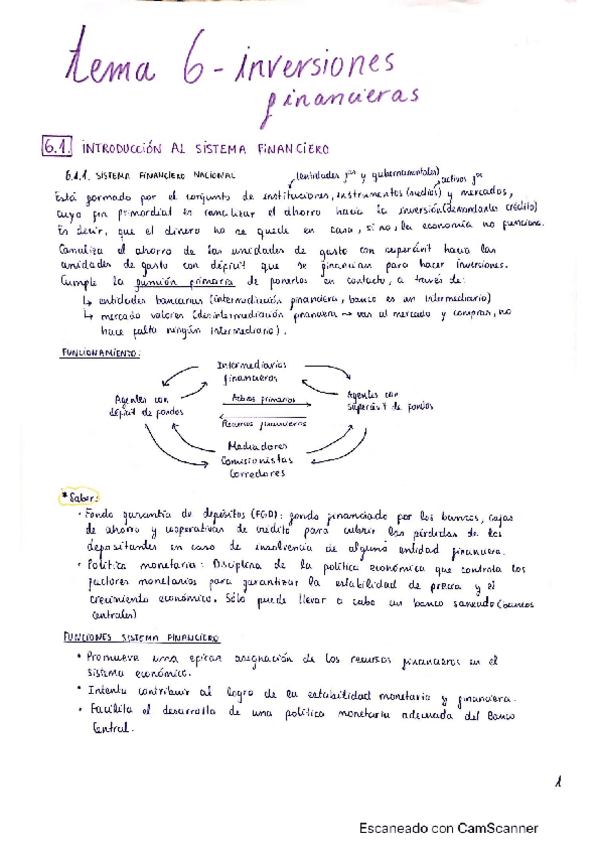 tema 6 - inversiones
financieras
6.1. INTRODUCCIÓN AL SISTEMA FINANCIERO
6.1.1. SISTEMA FINANCIERO NACIONAL
(entidades fras y gubernamentales)
activos fros
Está formado por el conjunto de instituciones, instrumentos (medios) y mercados,
cuyo fin primordial es canalizar el ahorro hacia la inversión (demandantes crédito)
Es decir, que el dinero no se quede en casa, si no, la economía no funciona.
Canaliza el ahorro de las unidades de gasto con superávit hacia las
unidades de gasto con déficit que se financian para hacer inversiones.
Cumple la función primaria de ponerlos en contacto, a través de:
↳ entidades bancarias (intermediación financiera, banco es un intermediario)
↳ mercado valores (desintermediación financiera → vas al mercado y compras, no
hace falta ningún intermediario).
FUNCIONAMIENTO:
Intermediarios
financieros
Agentes con
déficit de fondos
Activos primarios
Recursos financieros
Agentes con
superávit de fondos
Mediadores
Comisionistas
Corredores
* Saber:
• Fondo garantía de depósitos (FGD): fondo financiado por los bancos, cajas
de ahorro y cooperativas de crédito para cubrir las pérdidas de los
depositantes en caso de insolvencia de alguna entidad financiera.
• Política monetaria: Disciplina de la política económica que controla los
factores monetarios para garantizar la estabilidad de precios y el
crecimiento económico. Sólo puede llevar a cabo un banco saneado (bancos
centrales)
FUNCIONES SISTEMA FINANCIERO
• Promueve una eficaz asignación de los recursos financieros en el
sistema económico.
• Intenta contribuir al logro de la estabilidad monetaria y financiera.
• Facilita el desarrollo de una política monetaria adecuada del Banco
Central.
1
Escaneado con CamScanner